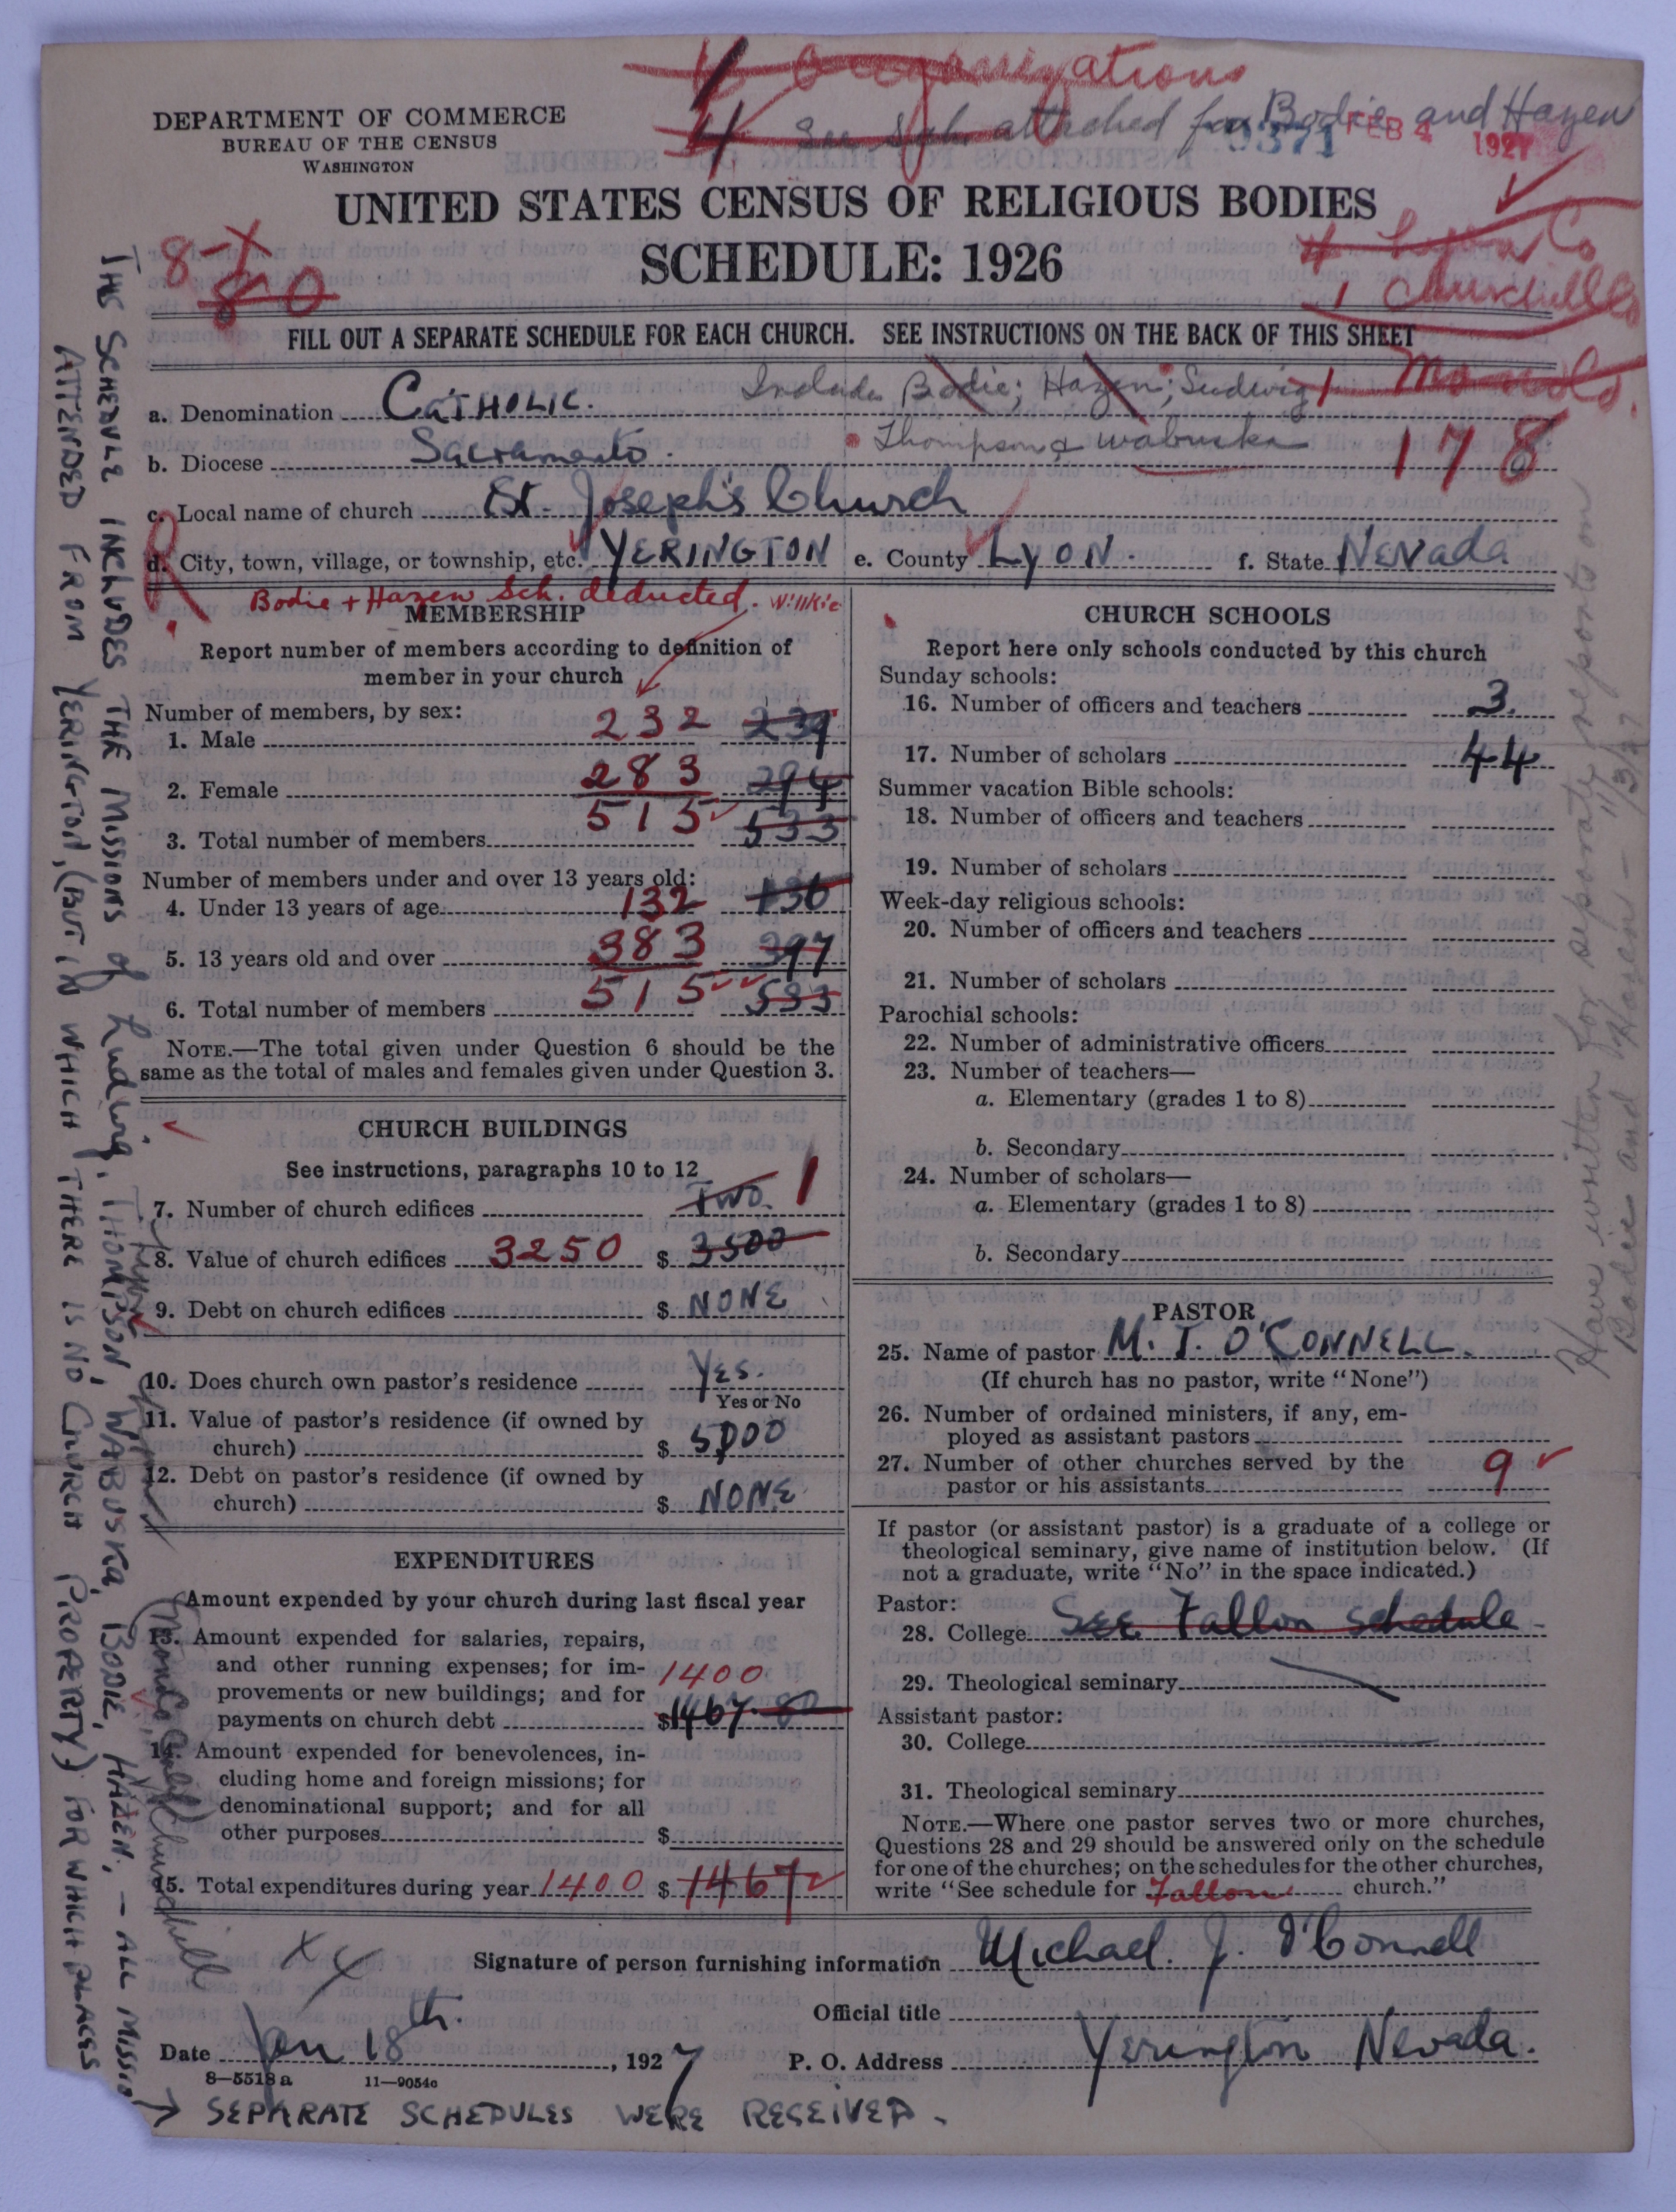 organizations
4 See Sch. attached for Bodie and Hazen
DEPARTMENT OF COMMERCE
BUREAU OF THE CENSUS
WASHINGTON
9371 FEB 4 1927
UNITED STATES CENSUS OF RELIGIOUS BODIES
SCHEDULE: 1926
4 Lyon Co
1 Churchill Co
1 Mono Co.
8-
80
FILL OUT A SEPARATE SCHEDULE FOR EACH CHURCH. SEE INSTRUCTIONS ON THE BACK OF THIS SHEET
Include Bodie; Hazen; Ludwig
a. Denomination CATHOLIC.
Thompson & Wabuska
178
b. Diocese Sacramento.
c. Local name of church St. Joseph's Church
R
d. City, town, village, or township, etc. YERINGTON e. County LYON. f. State NEVada
Bodie + Hazen Sch. deducted. Willkie
MEMBERSHIP
Report number of members according to definition of
member in your church
Number of members, by sex:
1. Male 232 239
2. Female 283 294
3. Total number of members 515 533
Number of members under and over 13 years old:
4. Under 13 years of age 132 136
5. 13 years old and over 383 397
6. Total number of members 515 533
NOTE.—The total given under Question 6 should be the
same as the total of males and females given under Question 3.
CHURCH BUILDINGS
See instructions, paragraphs 10 to 12
7. Number of church edifices TWO. 1
8. Value of church edifices 3250 $ 3500
9. Debt on church edifices $ NONE
10. Does church own pastor's residence YES.
Yes or No
11. Value of pastor's residence (if owned by
church) $ 5000
12. Debt on pastor's residence (if owned by
church) $ NONE
EXPENDITURES
Amount expended by your church during last fiscal year
13. Amount expended for salaries, repairs,
and other running expenses; for im-
provements or new buildings; and for
payments on church debt 1400 $1467.80
14. Amount expended for benevolences, in-
cluding home and foreign missions; for
denominational support; and for all
other purposes $
15. Total expenditures during year 1400 $ 1467
CHURCH SCHOOLS
Report here only schools conducted by this church
Sunday schools:
16. Number of officers and teachers 3.
17. Number of scholars 44
Summer vacation Bible schools:
18. Number of officers and teachers
19. Number of scholars
Week-day religious schools:
20. Number of officers and teachers
21. Number of scholars
Parochial schools:
22. Number of administrative officers
23. Number of teachers—
a. Elementary (grades 1 to 8)
b. Secondary
24. Number of scholars—
a. Elementary (grades 1 to 8)
b. Secondary
PASTOR
25. Name of pastor M. J. O'CONNELL.
(If church has no pastor, write "None")
26. Number of ordained ministers, if any, em-
ployed as assistant pastors
27. Number of other churches served by the
pastor or his assistants 9
If pastor (or assistant pastor) is a graduate of a college or
theological seminary, give name of institution below. (If
not a graduate, write "No" in the space indicated.)
Pastor:
28. College SEE Fallon schedule
29. Theological seminary
Assistant pastor:
30. College
31. Theological seminary
NOTE.—Where one pastor serves two or more churches,
Questions 28 and 29 should be answered only on the schedule
for one of the churches; on the schedules for the other churches,
write "See schedule for Fallon church."
Signature of person furnishing information Michael. J. O'Connell
Official title
Date Jan 18th., 1927
P. O. Address Yerington Nevada.
8—5518a 11—9054c
THIS SCHEDULE INCLUDES THE MISSIONS of Ludwig, THOMPSON, WABUSKA, BODIE, HAZEN, – ALL MISSIO
ATTENDED FROM YERINGTON, (BUT IN WHICH THERE IS NO CHURCH PROPERTY) FOR WHICH PLACES
→ SEPARATE SCHEDULES WERE RECEIVED.
(Mono Calif) Churchill
Have written for separate reports on
Bodie and Hazen - 11/3/27